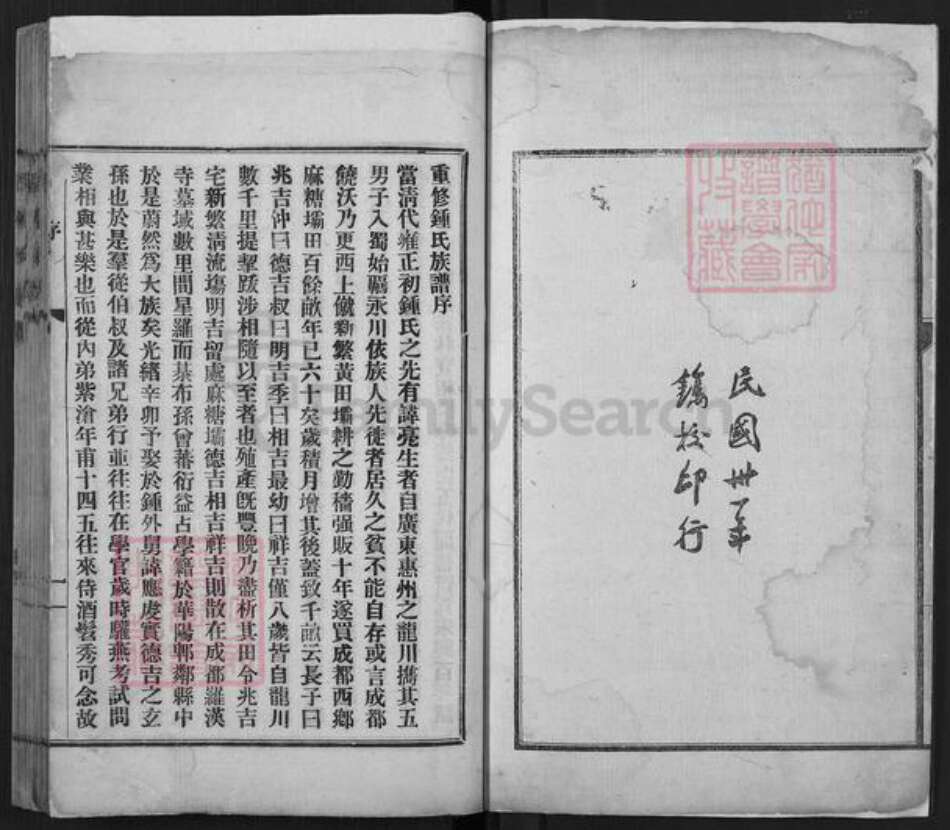 民國卅一年
鐫校印行
重修鍾氏族譜序
當清代雍正初鍾氏之先有諱亮生者自廣東惠州之龍川擕其五
男子入蜀始覊永川依族人先徙者居久之貧不能自存或言成都
饒沃乃更西上僦新繁黃田壩耕之勤穡强販十年遂買成都西鄉
麻糖壩田百餘畝年已六十矣歲積月增其後蓋致千畝云長子曰
兆吉沖曰德吉叔曰明吉季曰相吉最幼曰祥吉僅八歲皆自龍川
數千里提挈跋涉相隨以至者也殖產旣豐晚乃盡析其田令兆吉
宅新繁清流塲明吉留處麻糖壩德吉相吉祥吉則散在成都羅漢
寺墓域數里間星羅而棊布孫曾蕃衍益占學籍於華陽郫鄰縣中
於是蔚然爲大族矣光緒辛卯予娶於鍾外舅諱應虔實德吉之玄
孫也於是羣從伯叔及諸兄弟行並往往在學官歲時驩燕考試問
業相與甚樂也而從內弟紫滄年甫十四五往來侍酒髫秀可念故
序
一
FamilySearch